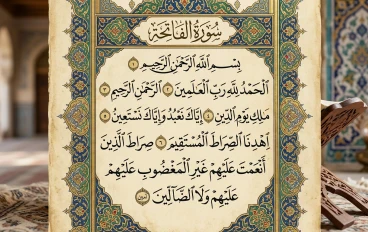 سُورَةُ الْفَاتِحَةِ
بِسْمِ اللَّهِ الرَّحْمَٰنِ الرَّحِيمِ ۝
الْحَمْدُ لِلَّهِ رَبِّ الْعَالَمِينَ ۝ الرَّحْمَٰنِ الرَّحِيمِ
مَلِكِ يَوْمِ الدِّينِ ۝ إِيَّاكَ نَعْبُدُ وَإِيَّاكَ نَسْتَعِينُ ۝
اِهْدِنَا الصِّرَاطَ الْمُسْتَقِيمَ ۝ صِرَاطَ الَّذِينَ
أَنْعَمْتَ عَلَيْهِمْ غَيْرِ الْمَغْضُوبِ عَلَيْهِمْ
عَلَيْهِمْ وَلَا الضَّالِّينَ ۝